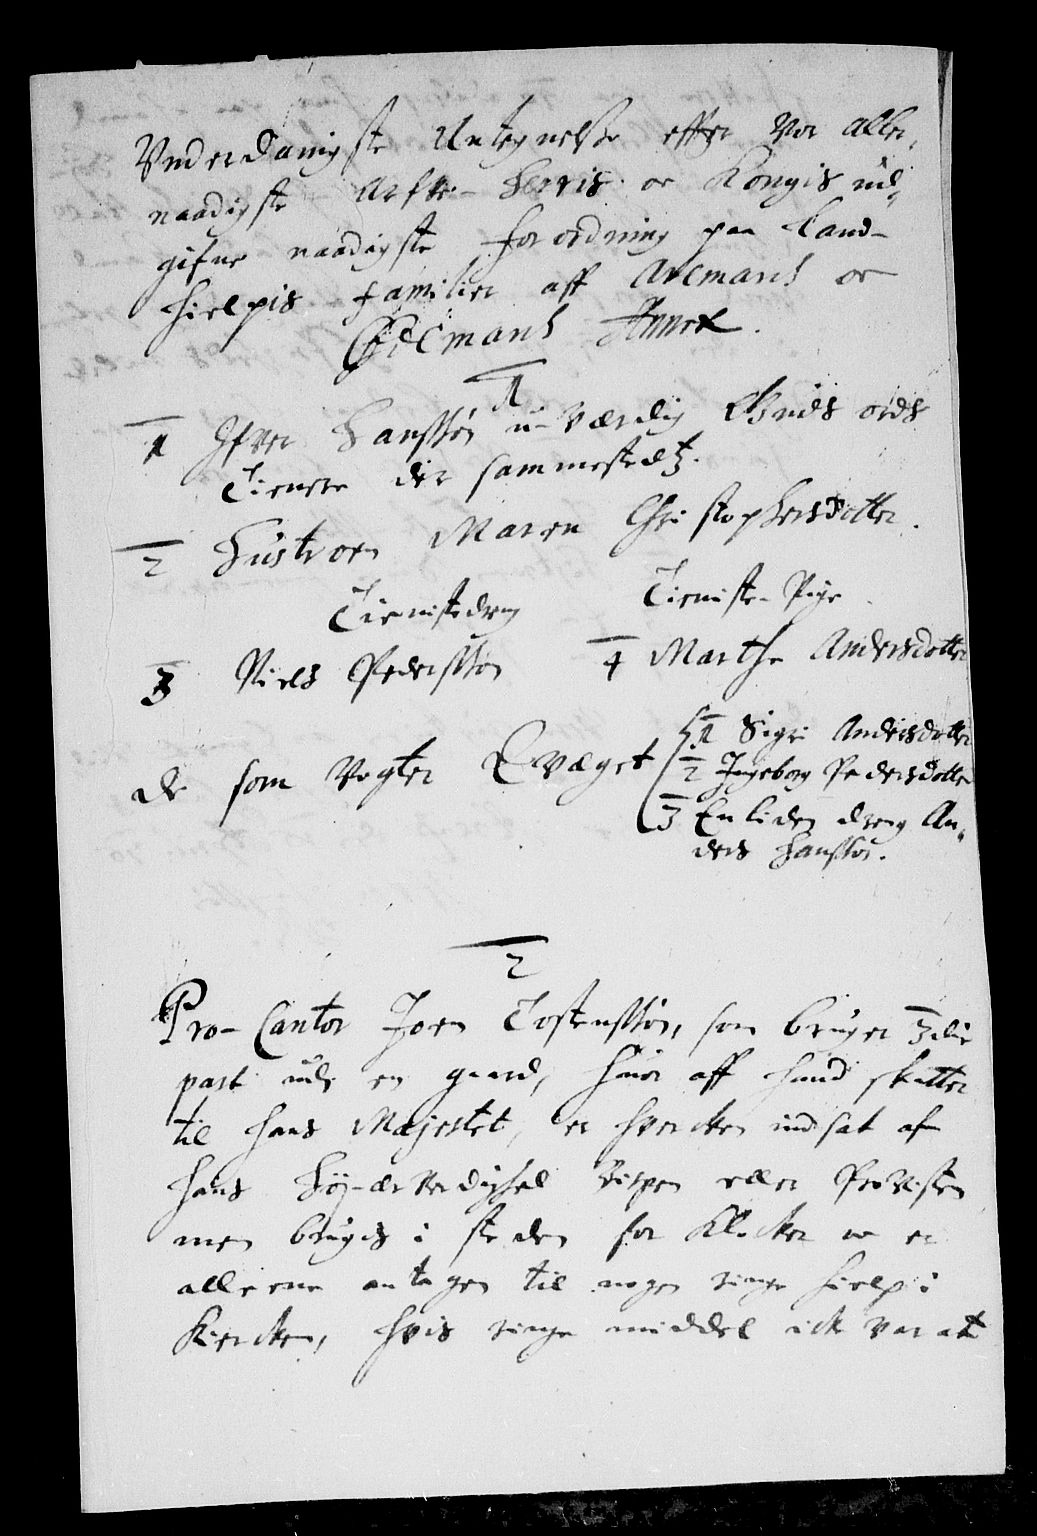 Vnderdanigste Antegnelse effter Vor aller,
naadigste Arfve-Herris oc Kongis ud,
gifne naadigste forordning paa Land-
hielpis familier aff Aremarch oc
Ødemarch Annex.
1
1 Ifver Hanssøn u-værdig Guds ords
Tienere der sammestedtz.
2 Hustroen Maren Christophersdotter.
Tienistedreng Tieniste-Pige
3 Niels Pederssøn 4 Marthe Andersdotter
de som Vogter Qvæget
1 Sigri Andersdotter
2 Ingeborg Pedersdotter
3 En liden dreng An,
ders Hanssøn.
2
Pro-Cantor Joen Tostenssøn, som bruger 3die
part udi en gaard, huor aff hand skatter
til hans Majestet, er hvercken indsat af
hans Høj-ærverdighed Bispen eller Provsten
men bruges i steden for Klocker oc er
alleene antagen til nogen ringe hielp i
Kiercken, hvis ringe middel ick var at